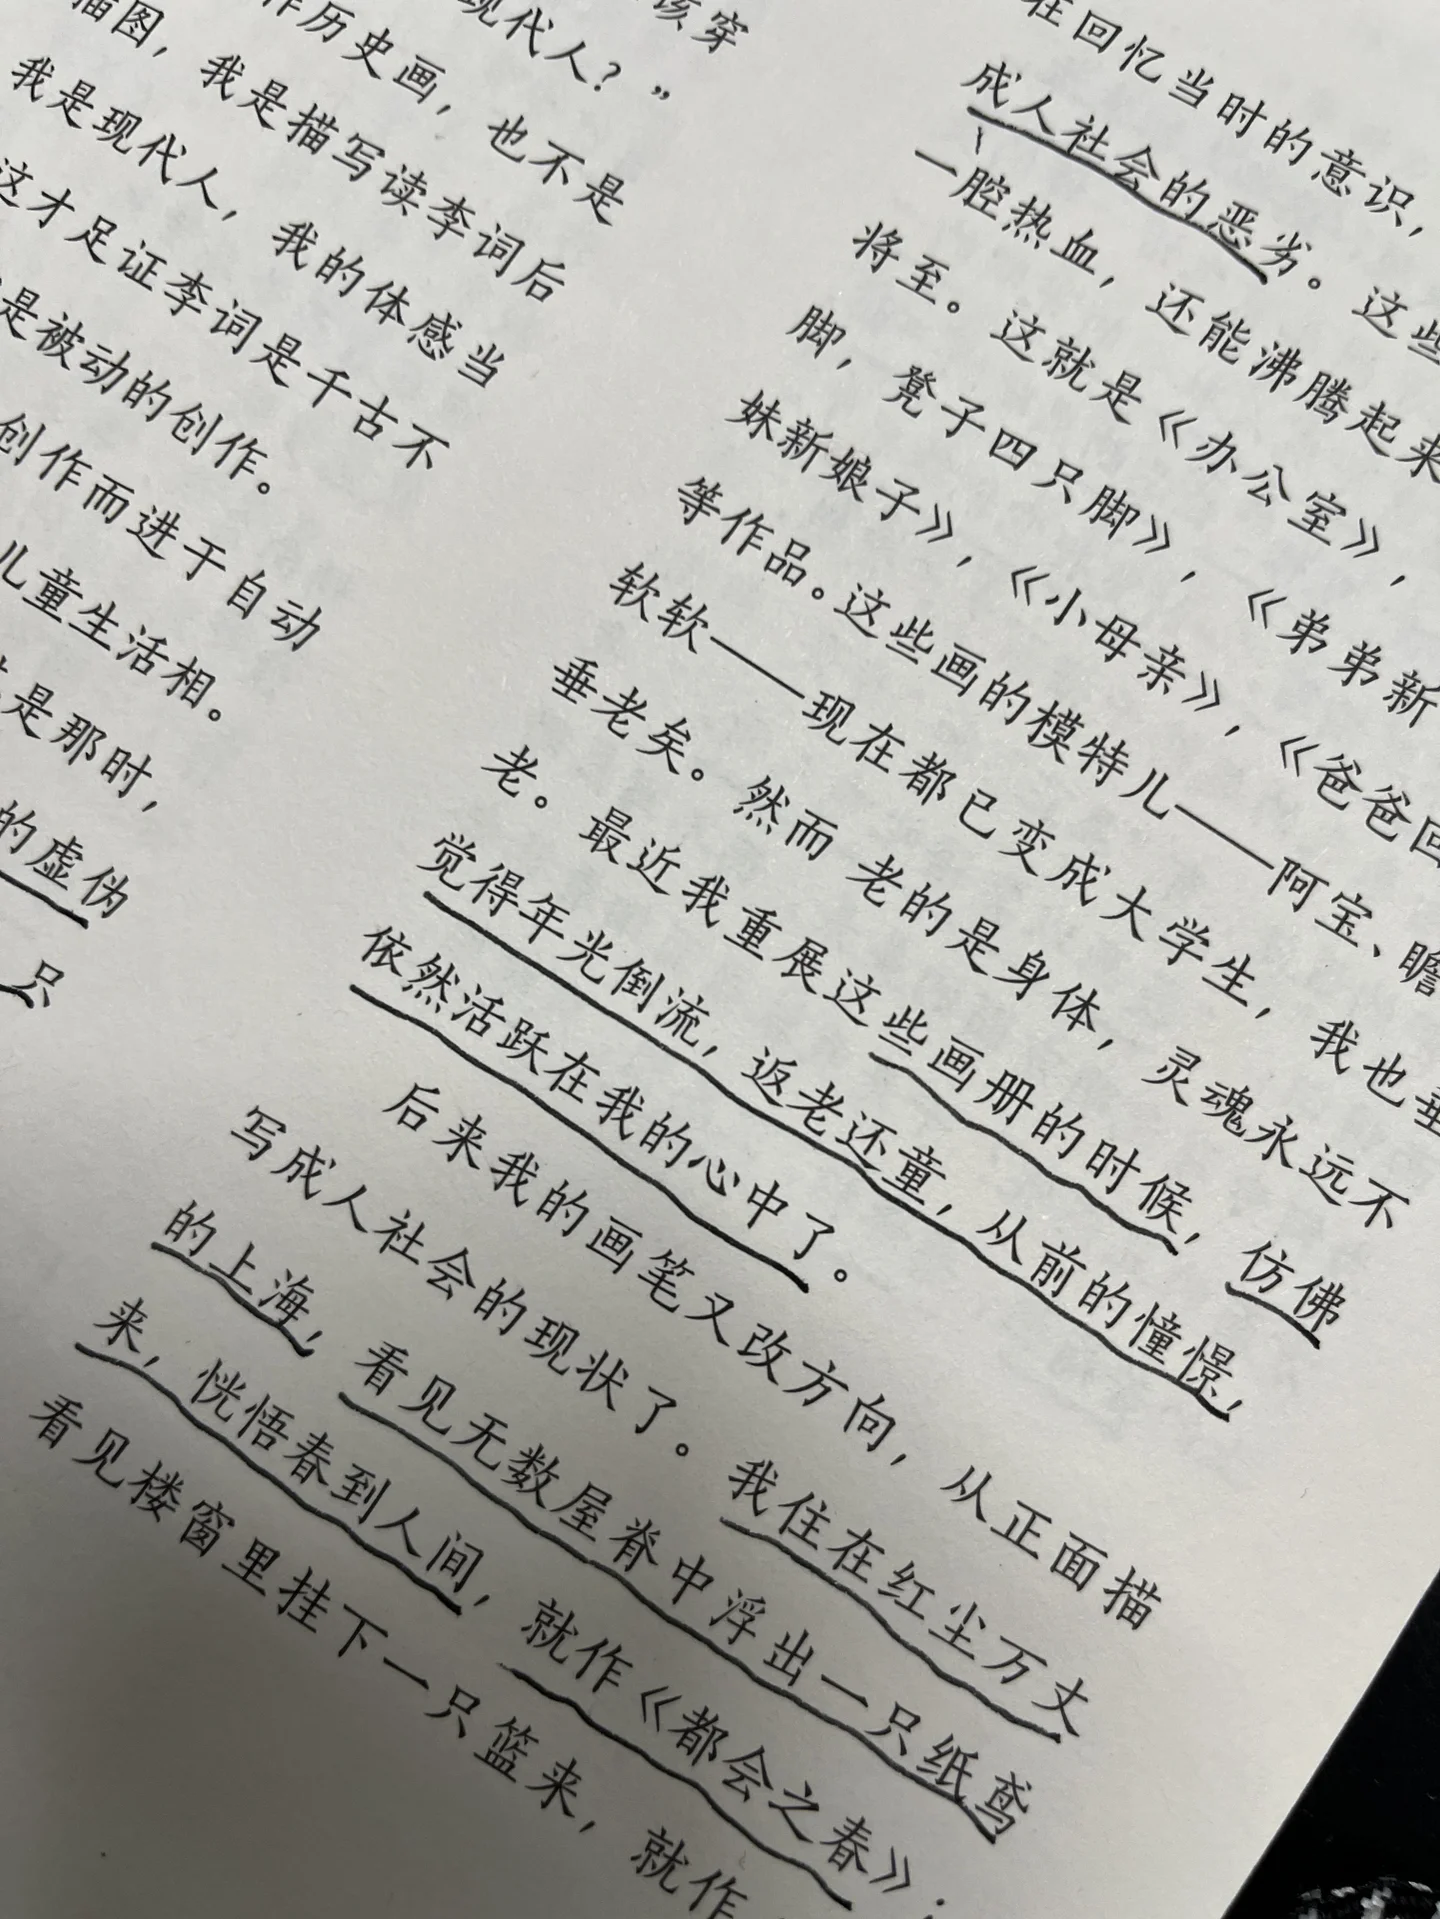 该穿
现代人？”
作历史画，也不是
插图，我是描写读李词后
我是现代人，我的体感当
这才足证李词是千古不
是被动的创作。
创作而进于自动
儿童生活相。
是那时，
的虚伪
只
在回忆当时的意识，
成人社会的恶劣。这些
一腔热血，还能沸腾起来
将至。这就是《办公室》，
脚，凳子四只脚》，《弟弟新
妹新娘子》，《小母亲》，《爸爸回
等作品。这些画的模特儿——阿宝、瞻
软软——现在都已变成大学生，我也垂
垂老矣。然而老的是身体，灵魂永远不
老。最近我重展这些画册的时候，仿佛
觉得年光倒流，返老还童，从前的憧憬，
依然活跃在我的心中了。
后来我的画笔又改方向，从正面描
写成人社会的现状了。我住在红尘万丈
的上海，看见无数屋脊中浮出一只纸鸢
来，恍悟春到人间，就作《都会之春》；
看见楼窗里挂下一只篮来，就作